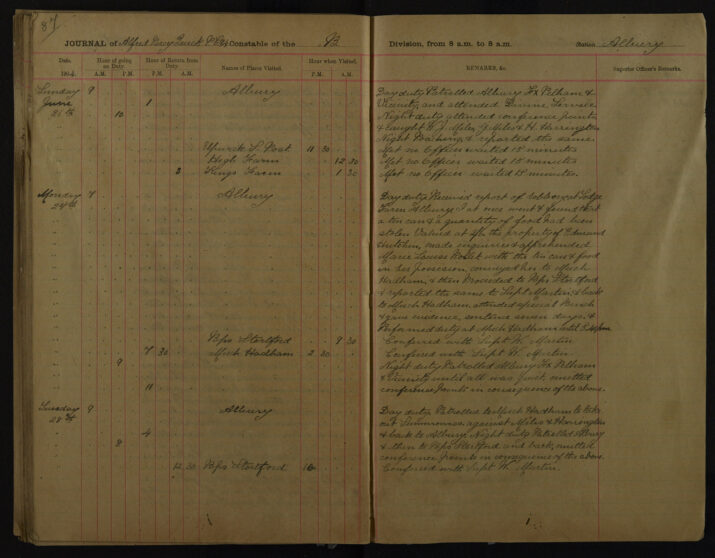 87
JOURNAL of Alfred Percy Quick P.C. Constable of the B
Division, from 8 a.m. to 8 a.m. Station Albury
Date. Hour of going on Duty. Hour of Return from Duty. Names of Places Visited. Hour when Visited. REMARKS, &c. Superior Officer's Remarks.
190 A.M. P.M. A.M. P.M. P.M. A.M.
Sunday 9 Albury Day duty Patrolled Albury Fx Pelham &
June 1 Vicinity, and attended Divine Service
26th 10 Night duty attended conference points
& caught W. J. Miles & H. Harrington
Night Poaching & reported the same.
Upwick Post 11 30 Met no Officer waited 15 minutes
Hogh Farm 12 30 Met no Officer waited 15 minutes
2 Kings Farm 1 30 Met no Officer waited 15 minutes.
Monday 7 Albury Day duty Received report of robbery at Lodge
Farm Albury. I at once went & found that
a tin can & a quantity of food had been
stolen Valued at the property of Edward
Hutchin, made enquiries & apprehended
Marie Louise with the tin can & food
in her possession, conveyed her to Much
Hadham, & then Proceeded to Bps Stortford
& reported the same to Supt Martin, & back
to Much Hadham, attended special Bench
& gave evidence, sentence seven days. &
Performed duty at Much Hadham until
Bps Stortford 9 30 Conferred with Supt W. Martin
7 30 Much Hadham 2 30 Conferred with Supt W. Martin
9 Night duty Patrolled Albury Fx Pelham
& Vicinity until all was quiet. omitted
11 conference Points in consequence of the above.
Tuesday 9 Albury Day duty Patrolled to Much Hadham to take
28th out Summonses against Miles & Harrington
4 & back to Albury. Night duty Patrolled Albury
8 & then to Bps Stortford and back, omitted
conference Points in consequence of the above.
12 30 Bps Stortford 10 Conferred with Supt W. Martin.